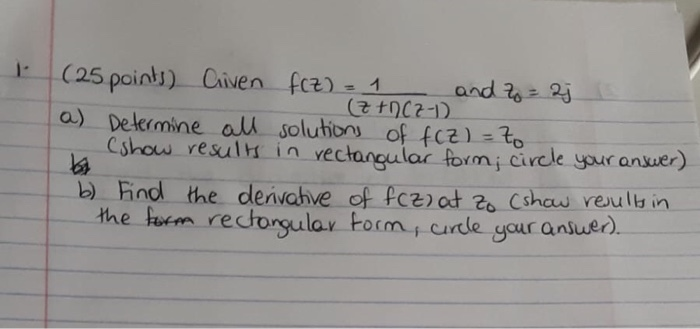 1. (25 points) Given f(z) = 1 / (z+1)(z-1) and z₀ = 2j
a) Determine all solutions of f(z) = z₀
(show results in rectangular form; circle your answer)
b) Find the derivative of f(z) at z₀ (show results in
the form rectangular form, circle your answer).